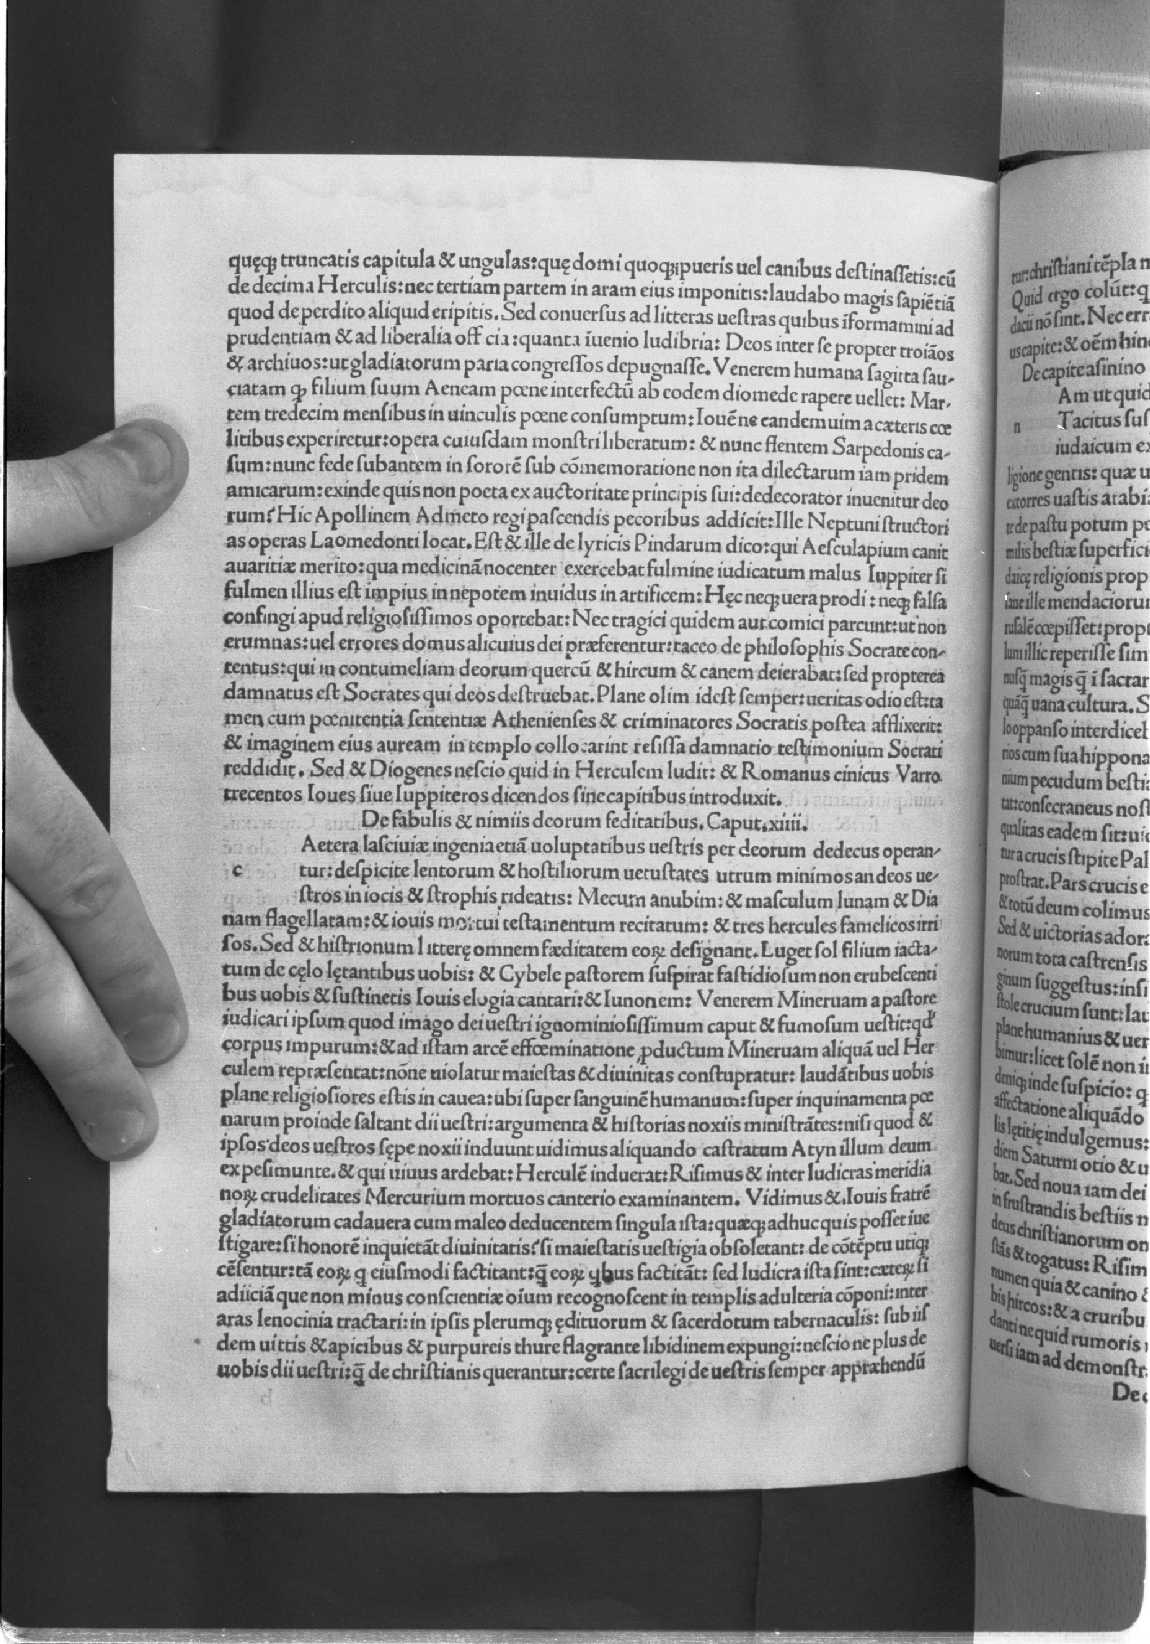 quęq; truncatis capitula & ungulas:quę domi quoq;pueris uel canibus destinassetis:cū
de decima Herculis:nec tertiam partem in aram eius imponitis:laudabo magis sapiētiā
quod de perdito aliquid eripitis. Sed conuersus ad litteras uestras quibus īformamini ad
prudentiam & ad liberalia off cia:quanta īuenio ludibria: Deos inter se propter troiāos
& archiuos:ut gladiatorum paria congressos depugnasse. Venerem humana sagitta sau-
ciatam q; filium suum Aeneam pœne interfectū ab eodem diomede rapere uellet: Mar-
tem tredecim mensibus in uinculis pœne consumptum:Iouē ne eandem uim a cæteris cœ
litibus experiretur:opera cuiusdam monstri liberatum: & nunc flentem Sarpedonis ca-
sum:nunc fede subantem in sororē sub cōmemoratione non ita dilectarum iam pridem
amicarum:exinde quis non poeta ex auctoritate principis sui:dedecorator inuenitur deo
rum? Hic Apollinem Admeto regi pascendis pecoribus addicit: Ille Neptuni structori
as operas Laomedonti locat. Est & ille de lyricis Pindarum dico:qui Aesculapium canit
auaritiæ merito:qua medicinā nocenter exercebat fulmine iudicatum malus Iuppiter si
fulmen illius est impius in nepotem inuidus in artificem: Hęc neq; uera prodi : neq; falsa
confingi apud religiosissimos oportebat: Nec tragici quidem aut comici parcunt:ut non
erumnas:uel errores domus alicuius dei præferentur:taceo de philosophis Socrate con-
tentus:qui in contumeliam deorum quercū & hircum & canem deierabat:sed propterea
damnatus est Socrates qui deos destruebat. Plane olim idest semper:ueritas odio est:ta
men cum pœnitentia sententiæ Athenienses & criminatores Socratis postea afflixerit:
& imaginem eius auream in templo collocarint rescissa damnatio testimonium Socrati
reddidit. Sed & Diogenes nescio quid in Herculem ludit: & Romanus cinicus Varro
trecentos Ioues siue Iuppiteros dicendos sine capitibus introduxit.
De fabulis & nimiis deorum feditatibus. Caput.xiiii.
Aetera lasciuiæ ingenia etiā uoluptatibus uestris per deorum dedecus operan-
c tur:despicite lentorum & hostiliorum uetustates utrum minimos an deos ue-
stros in iocis & strophis rideatis: Mecum anubim: & masculum lunam & Dia
nam flagellatam:& iouis mortui testamentum recitatum: & tres hercules famelicos irri
sos. Sed & histrionum litterę omnem fæditatem eoꝝ designant. Luget sol filium iacta-
tum de cęlo lętantibus uobis: & Cybele pastorem suspirat fastidiosum non erubescenti
bus uobis & sustinetis Iouis elogia cantari:& Iunonem: Venerem Mineruam a pastore
iudicari ipsum quod imago dei uestri ignominiosissimum caput & fumosum uestit:qđ
corpus impurum:& ad istam arcē effœminatione ꝓductum Mineruam aliquā uel Her
culem repræsentat:nōne uiolatur maiestas & diuinitas constupratur: laudātibus uobis
plane religiosiores estis in cauea:ubi super sanguinē humanum:super inquinamenta pœ
narum proinde saltant dii uestri:argumenta & historias noxiis ministrātes:nisi quod &
ipsos deos uestros sępe noxii induunt uidimus aliquando castratum Atyn illum deum
ex pesimunte.& qui uiuus ardebat: Herculē induerat:Risimus & inter ludicras meridia
noꝝ crudelitates Mercurium mortuos canterio examinantem. Vidimus &.Iouis fratrē
gladiatorum cadauera cum maleo deducentem singula ista:quæq; adhuc quis posset īue
stigare:si honorē inquietāt diuinitatis?si maiestatis uestigia obsoletant: de cōtēptu utiq;
cēsentur:tā eoꝝ q eiusmodi factitant:q̄ eoꝝ qbus factitāt: sed ludicra ista sint:cæteꝝ si
adiiciā que non minus conscientiæ oīum recognoscent in templis adulteria cōponi:inter
aras lenocinia tractari:in ipsis plerumq; ędituorum & sacerdotum tabernaculis: sub iis
dem uittis & apicibus & purpureis thure flagrante libidinem expungi:nescio ne plus de
uobis dii uestri:q̄ de christianis querantur:certe sacrilegi de uestris semper appræhendū
tur:christiani tēpla n
Quid ergo colūt:q
dacii nō sint. Nec err
us capite:& oēm hin
De capite asinino
Am ut quid
n Tacitus suf
iudaicum ex
ligione gentis: quæ u
extorres uastis arabi
te de pastu potum pe
milis bestiæ superfici
daicę religionis prop
ille mendacioru
rusalē cœpisset:prop
lum illic reperisse sim
nusq̄ magis q̄ ī sacrar
quāq̄ uana cultura. S
looppanso interdicel
rios cum sua hippona
nium pecudum besti
tat:consecraneus nost
qualitas eadem sit:uic
tur a crucis stipite Pal
prostrat. Pars crucis e
& totū deum colimus
Sed & uictorias ador
norum tota castrensis
ginum suggestus:insi
stole crucium sunt:lau
plane humanius & uer
bimur:licet solē non i
deniq; inde suspicio: q
affectatione aliquādo
lis lętitię indulgemus:
diem Saturni otio & u
bat. Sed noua iam dei
in frustrandis bestiis n
deus christianorum on
stās & togatus: Risim
numen quia & canino &
bis hircos:& a cruribu
danti ne quid rumoris
uersi iam ad demonstr
De c